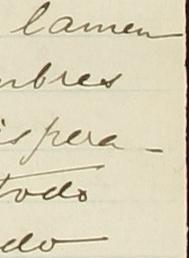 lamen
mbres
ispera-
todo
do